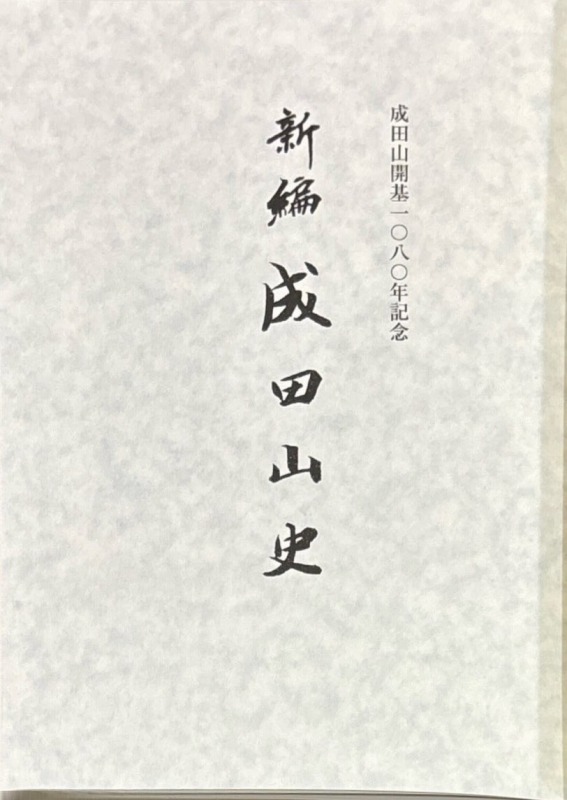 成田山開基一〇八〇年記念
新編成田山史